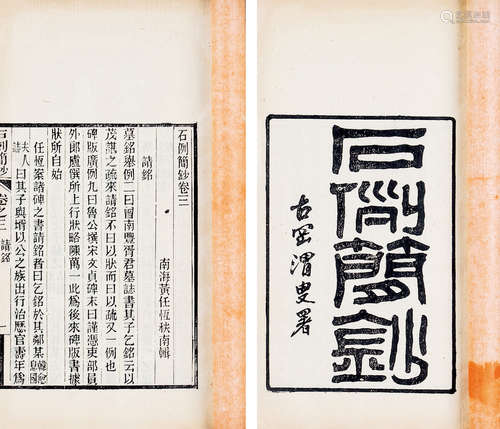 石例簡鈔
古岡渭叟署
石例簡鈔卷三
南海黃任恆秩南輯
請銘
墓銘舉例二曰曾南豐胥君墓誌書其子乞銘云以
茂諶之疏來請銘不曰以狀而曰以疏又一例也
碑版廣例九曰魯公撰宋文貞碑末曰謹憑吏部員
外郎盧僎所上行狀略陳萬一此為後來碑版書據
狀所自始
任恆案諸碑之書請銘者曰乞銘於其鄰某
夫人曰其子與壻以公之族出行治歷官壽年爲
石例簡鈔
卷之三
請銘
一